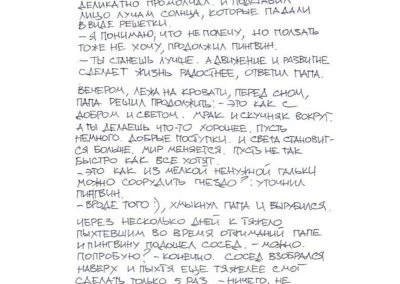 ДЕЛИКАТНО ПРОМОЛЧАЛ. И ПОДСТАВИЛ
ЛИЦО ЛУЧАМ СОЛНЦА, КОТОРЫЕ ПАДАЛИ
В ВИДЕ РЕШЕТКИ.
– Я ПОНИМАЮ, ЧТО НЕ ПОЛЕЧУ, НО ПОЛЗАТЬ
ТОЖЕ НЕ ХОЧУ, ПРОДОЛЖИЛ ПИНГВИН.
– ТЫ СТАНЕШЬ ЛУЧШЕ. А ДВИЖЕНИЕ И РАЗВИТИЕ
СДЕЛАЕТ ЖИЗНЬ РАДОСТНЕЕ, ОТВЕТИЛ ПАПА.
ВЕЧЕРОМ, ЛЕЖА НА КРОВАТИ, ПЕРЕД СНОМ,
ПАПА РЕШИЛ ПРОДОЛЖИТЬ: – ЭТО КАК С
ДОБРОМ И СВЕТОМ. МРАК И СКУЧНЯК ВОКРУГ.
А ТЫ ДЕЛАЕШЬ ЧТО-ТО ХОРОШЕЕ. ПУСТЬ
НЕМНОГО. ДОБРЫЕ ПОСТУПКИ. И СВЕТА СТАНОВИТ-
СЯ БОЛЬШЕ. МИР МЕНЯЕТСЯ. ПУСТЬ НЕ ТАК
БЫСТРО КАК ВСЕ ХОТЯТ.
– ЭТО КАК ИЗ МЕЛКОЙ НЕНУЖНОЙ ГАЛЬКИ
МОЖНО СООРУДИТЬ ГНЕЗДО?: УТОЧНИЛ
ПИНГВИН.
– ВРОДЕ ТОГО :), ХМЫКНУЛ ПАПА И ВЫРУБИЛСЯ.
ЧЕРЕЗ НЕСКОЛЬКО ДНЕЙ К ТЯЖЕЛО
ПЫХТЕВШИМ ВО ВРЕМЯ ОТЖИМАНИЙ ПАПЕ
И ПИНГВИНУ ПОДОШЕЛ СОСЕД. – МОЖНО
ПОПРОБУЮ? – КОНЕЧНО. СОСЕД ВЗОБРАЛСЯ
НАВЕРХ И ПЫХТЯ ЕЩЕ ТЯЖЕЛЕЕ СМОГ
СДЕЛАТЬ ТОЛЬКО 5 РАЗ. – НИЧЕГО, НЕ